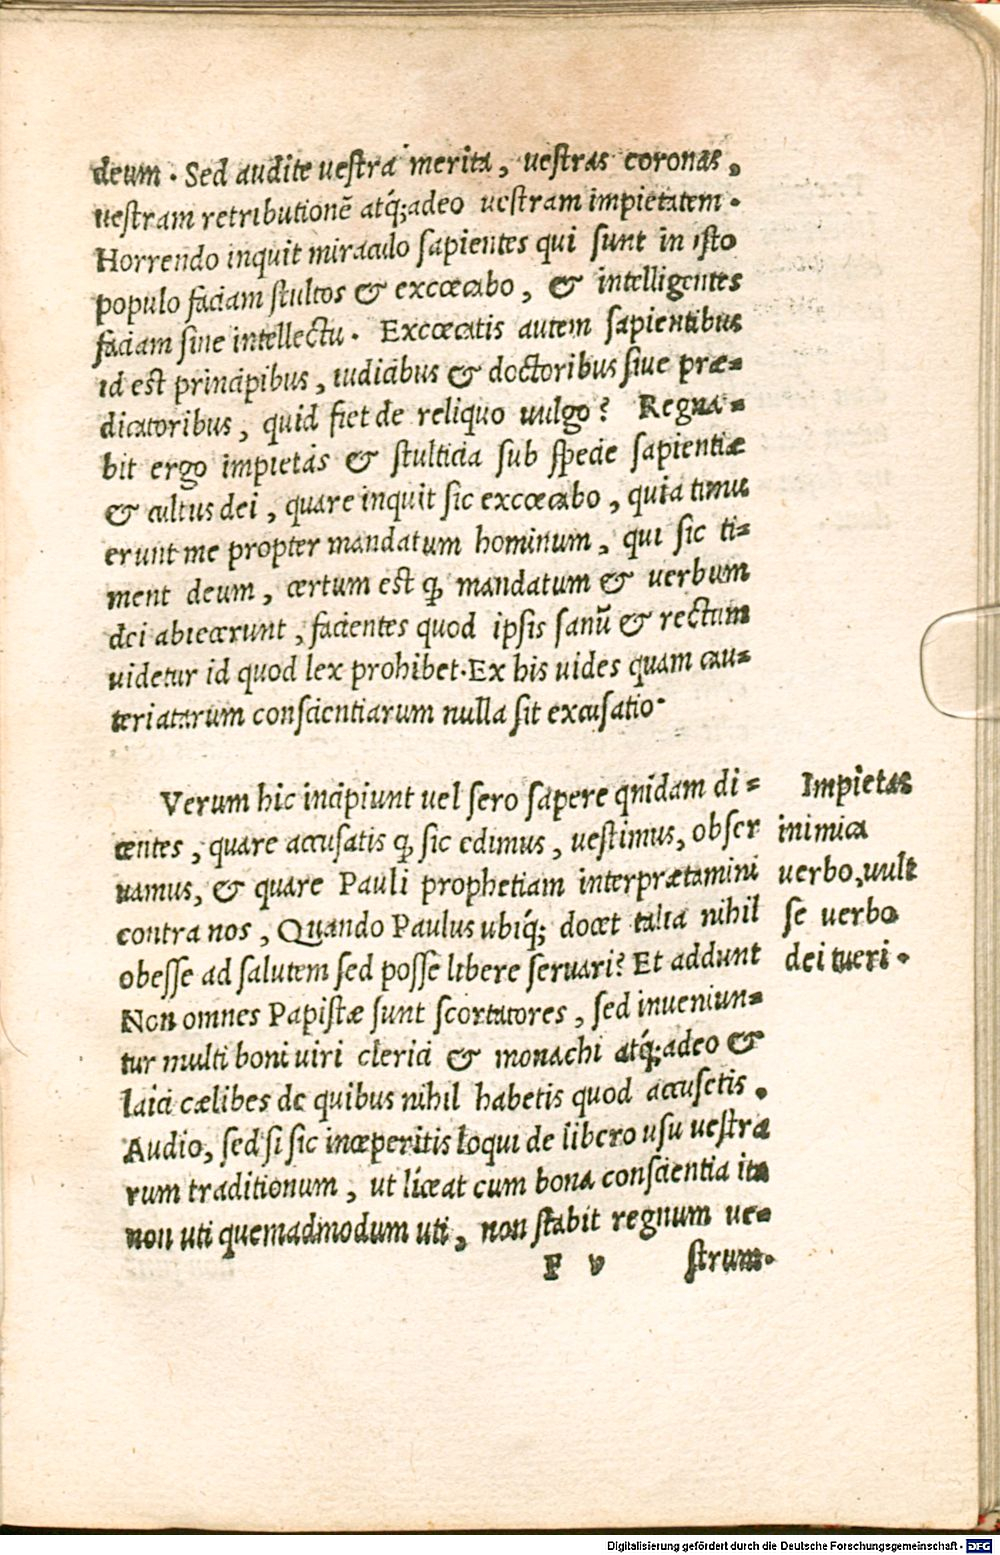 deum. Sed audite uestra merita, uestras coronas,
uestram retributionē atq́;adeo uestram impietatem.
Horrendo inquit miraculo sapientes qui sunt in isto
populo faciam stultos & excœcabo, & intelligentes
faciam sine intellectu. Excœcatis autem sapientibus
id est principibus, iudicibus & doctoribus siue præ=
dicatoribus, quid fiet de reliquo uulgo? Regna=
bit ergo impietas & stulticia sub specie sapientiæ
& cultus dei, quare inquit sic excœcabo, quia timue
erunt me propter mandatum hominum, qui sic ti=
ment deum, certum est ꝙ mandatum & uerbum
dei abiecerunt, facientes quod ipsis sanū & rectum
uidetur id quod lex prohibet.Ex his uides quam cau=
teriatarum conscientiarum nulla sit excusatio.
Verum hic incipiunt uel sero sapere qnidam di=
centes, quare accusatis ꝙ sic edimus, uestimus, obser
uamus, & quare Pauli prophetiam interprætamini
contra nos, Quando Paulus ubiq́; docet talia nihil
obesse ad salutem sed posse libere seruari? Et addunt
Non omnes Papistæ sunt scortatores, sed inueniun=
tur multi boni uiri clerici & monachi atq́;adeo &
laici cælibes de quibus nihil habetis quod accusetis.
Audio, sed si sic inceperitis loqui de libero usu uestra
rum traditionum, ut liceat cum bona conscientia ita
non uti quemadmodum uti, non stabit regnum ue=
F v strum.
Impietas
inimica
uerbo,uult
se uerbo
dei tueri.
Digitalisierung gefördert durch die Deutsche Forschungsgemeinschaft - DFG